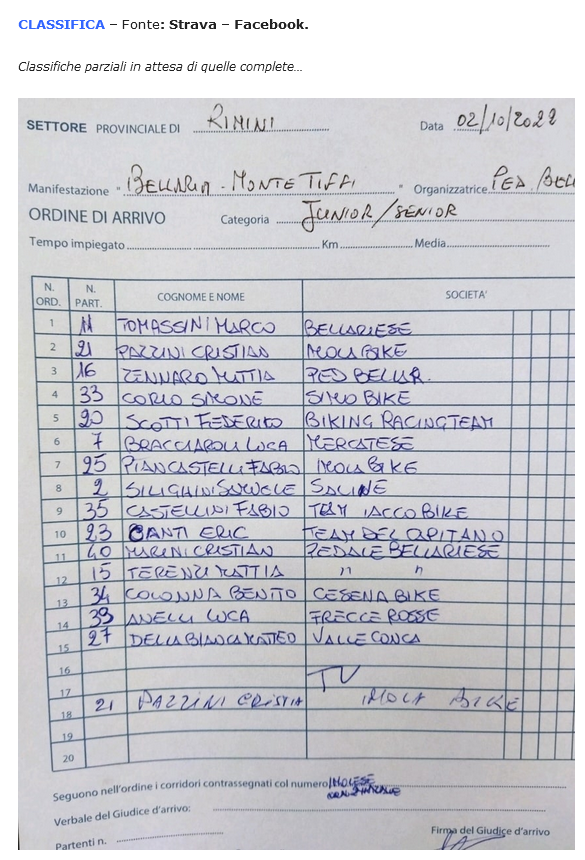 CLASSIFICA – Fonte: Strava – Facebook.
Classifiche parziali in attesa di quelle complete…
SETTORE PROVINCIALE DI RIMINI Data 02/10/2022
Manifestazione " BELLARIA - MONTE TIFFI " Organizzatrice PED. BELL
ORDINE DI ARRIVO Categoria JUNIOR/SENIOR
Tempo impiegato Km Media
N. ORD. N. PART. COGNOME E NOME SOCIETA'
1 11 TOMASSINI MARCO BELLARIESE
2 21 PAZZINI CRISTIAN IMOLA BIKE
3 16 ZENNARO MATTIA PED BELLAR.
4 33 CORLO SIMONE SIMO BIKE
5 20 SCOTTI FEDERICO BIKING RACING TEAM
6 7 BRACCIAROLI LUCA MERCATESE
7 25 PIANCASTELLI FABIO IMOLA BIKE
8 2 SILIGHINI SAMUELE SALINE
9 35 CASTELLINI FABIO TEAM IACCO BIKE
10 23 CANTI ERIC TEAM DEL CAPITANO
11 40 MARINI CRISTIAN PEDALE BELLARIESE
12 15 TERENZI MATTIA " "
13 34 COLONNA BENITO CESENA BIKE
14 39 ANELLI LUCA FRECCE ROSSE
15 27 DELLA BIANCA MATTEO VALLE CONCA
16
17 TV
18 21 PAZZINI CRISTIA IMOLA BIKE
19
20
Seguono nell'ordine i corridori contrassegnati col numero IMOLESE
Verbale del Giudice d'arrivo:
Partenti n. Firma del Giudice d'arrivo